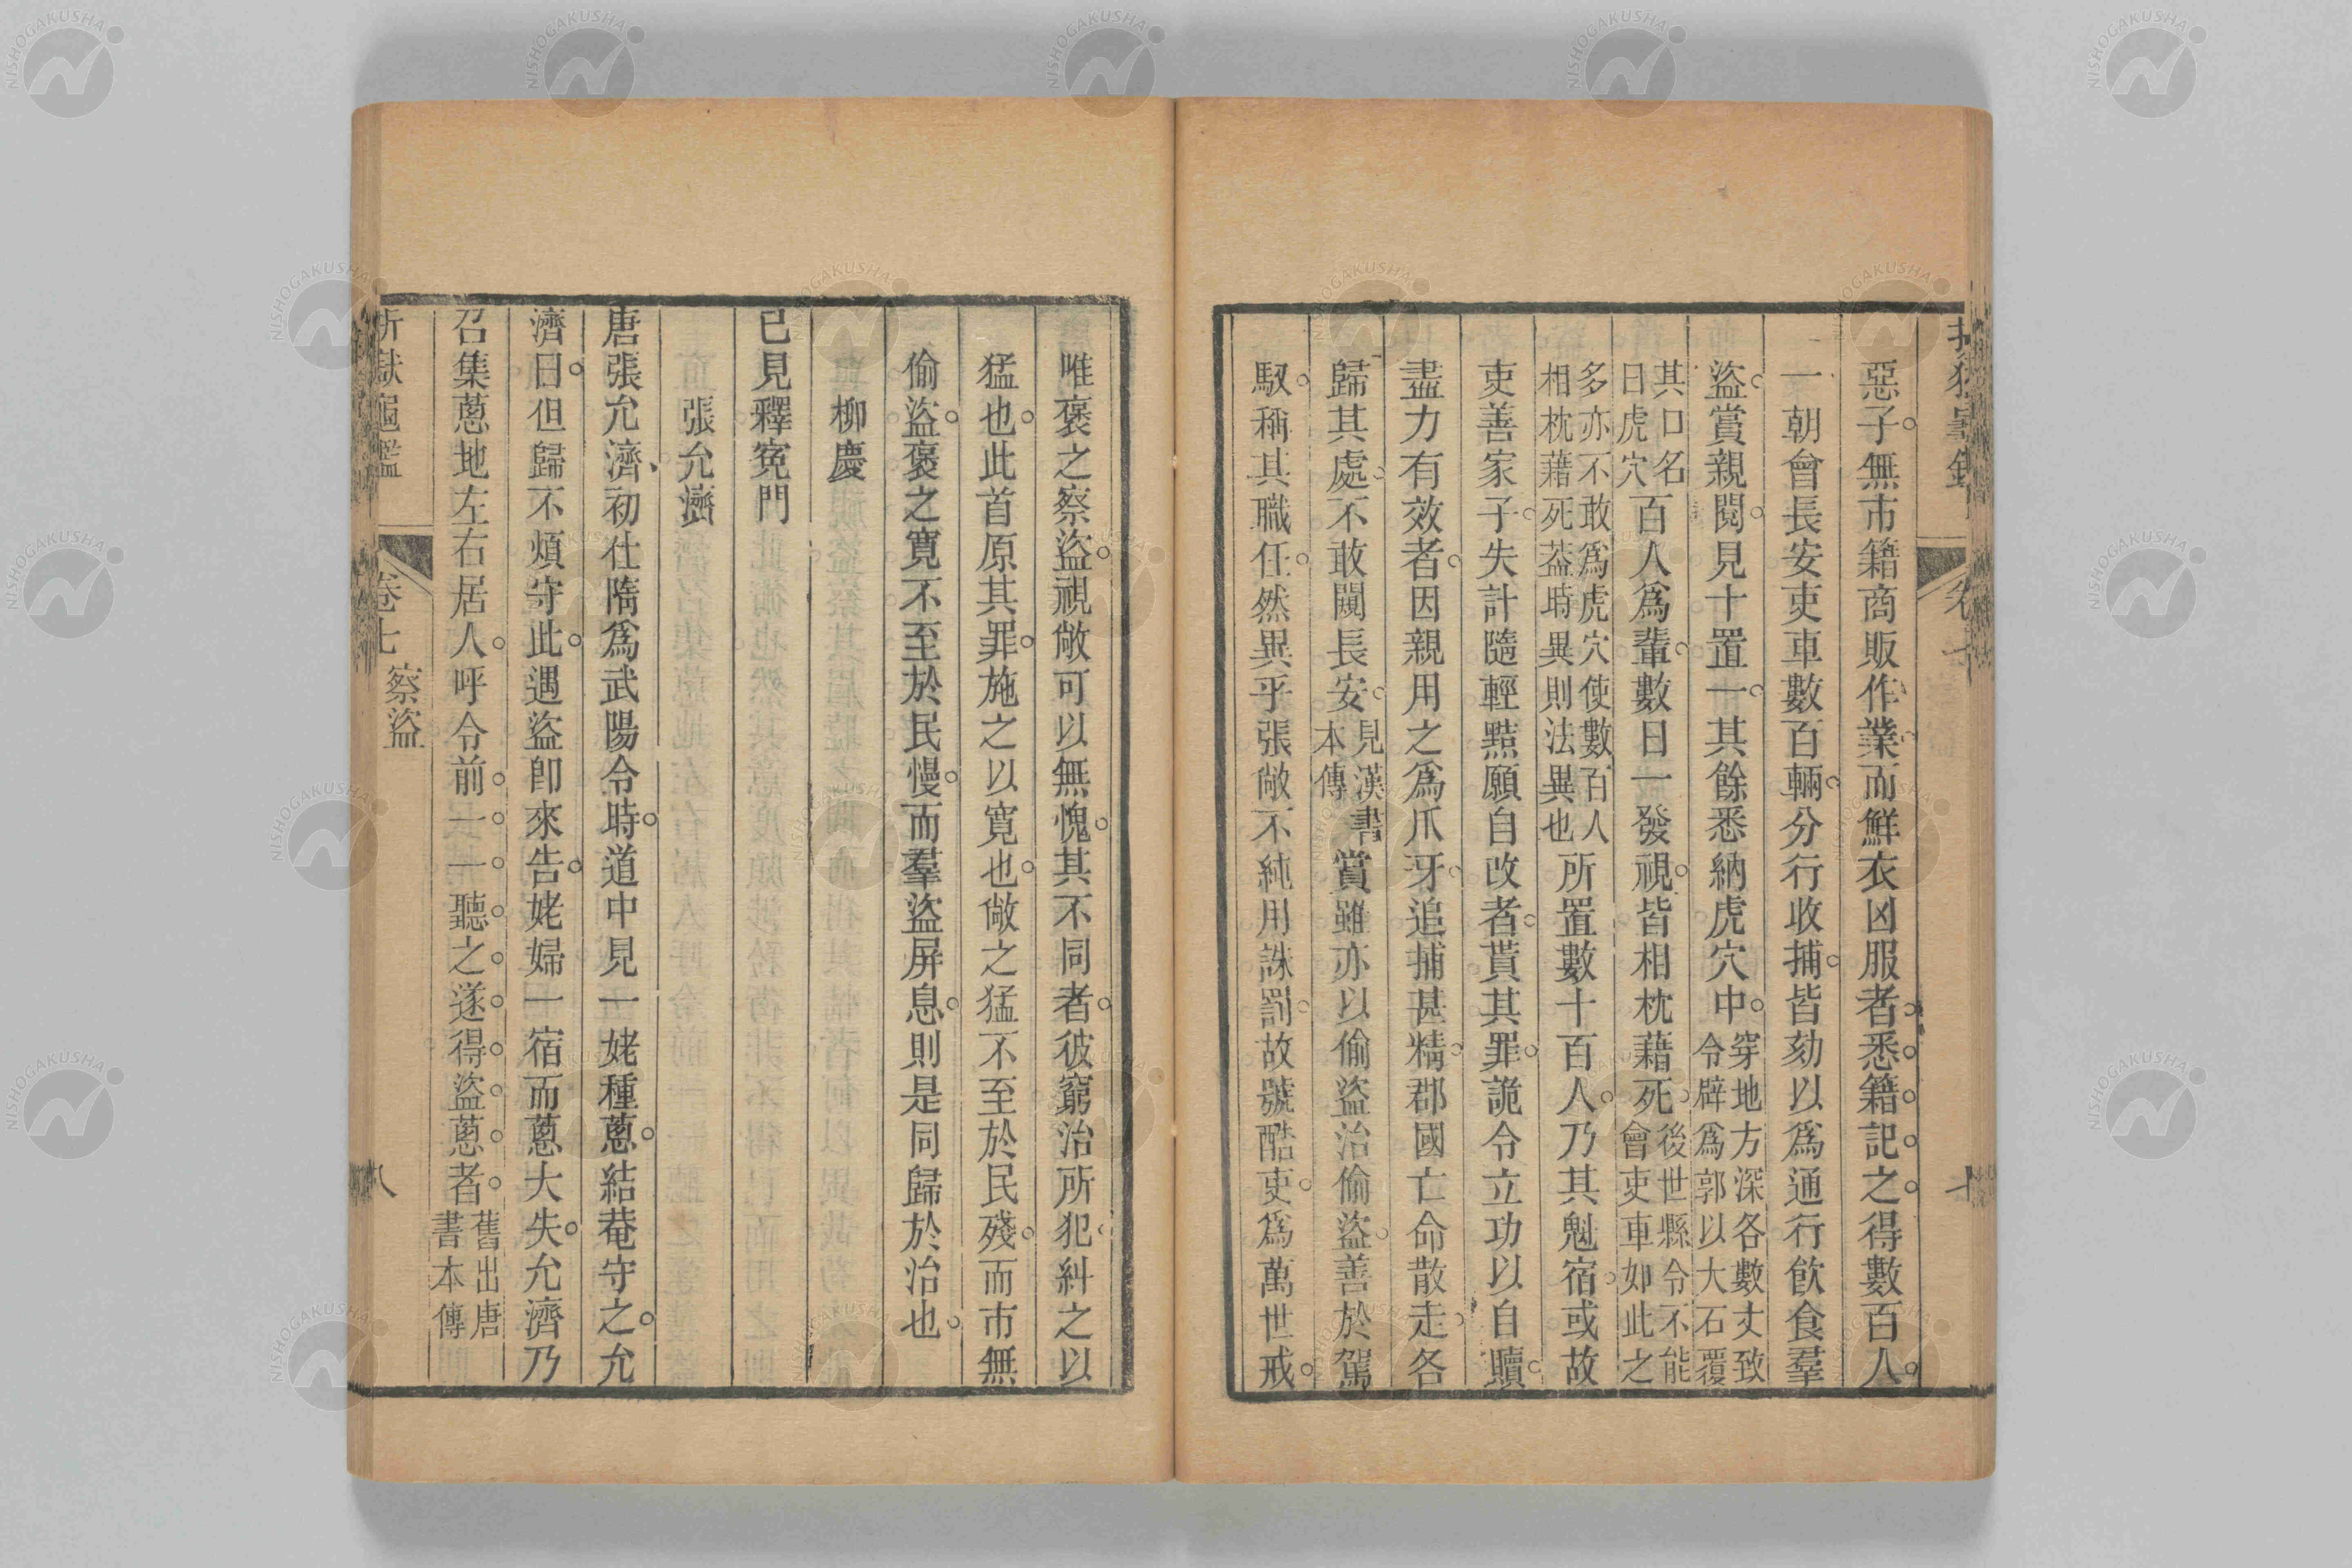 惡子無市籍商販作業而鮮衣凶服者悉籍記之得數百人
一朝會長安吏車數百輛分行收捕皆劾以爲通行飮食羣
盜賞親閱見十置一其餘悉納虎穴中穿地方深各數丈致令辟爲郭以大石覆
其口名曰虎穴百人爲輩數日一發視皆相枕藉死後世縣令不能會吏車如此之
多亦不敢爲虎穴使數百人相枕藉死葢時異則法異也所置數十百人乃其魁宿或故
吏善家子失計隨輕黠願自改者貰其罪詭令立功以自贖
盡力有效者因親用之爲爪牙追捕甚精郡國亡命散走各
歸其處不敢闚長安見漢書本傳賞雖亦以偷盜治偷盜善於駕
馭稱其職任然異乎張敞不純用誅罰故號酷吏爲萬世戒
唯褒之察盜視敞可以無愧其不同者彼窮治所犯糾之以
猛也此首原其罪施之以寬也敞之猛不至於民殘而市無
偷盜褒之寬不至於民慢而羣盜屏息則是同歸於治也
柳慶
已見釋冤門
張允濟
唐張允濟初仕隋爲武陽令時道中見一姥種蔥結菴守之允
濟曰但歸不煩守此遇盜卽來告姥婦一宿而蔥大失允濟乃
召集蔥地左右居人呼令前一一聽之遂得盜蔥者舊出唐書本傳
卷七 察盜 八